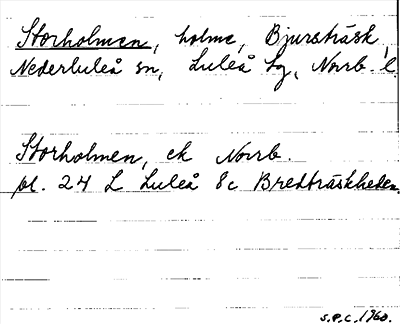 Storholmen, holme, Bjursträsk,
Nederluleå sn, Luleå tg, Norrb. l.
Storholmen, ek Norrb.
pl. 24 L Luleå 8c Bredträskheden.
S.P.C. 1960.